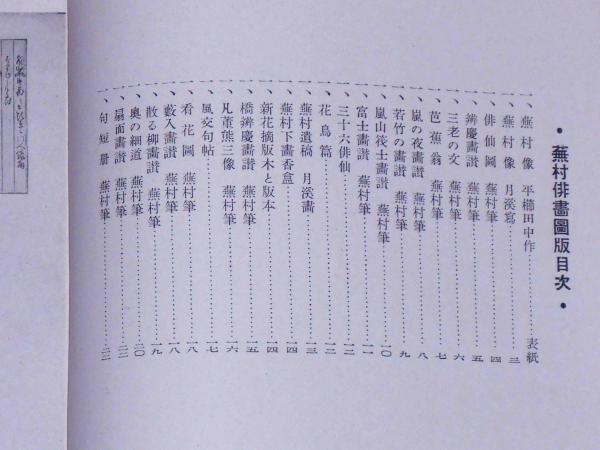 • 蕪村俳畵圖版目次 •
一、蕪村像 平櫛田中作……表紙
一、蕪村像 月溪寫……三
一、俳仙圖 蕪村筆……四
一、辨慶畵讃 蕪村筆……五
一、三老の文 蕪村筆……六
一、芭蕉翁 蕪村筆……七
一、嵐の夜畵讃 蕪村筆……八
一、若竹の畵讃 蕪村筆……九
一、嵐山筏士畵讃 蕪村筆……一〇
一、富士畵讃 蕪村筆……一一
一、三十六俳仙……一二
一、花鳥篇……一二
一、蕪村遺稿 月溪畵……一三
一、蕪村下畵香盒……一四
一、新花摘版木と版本……一四
一、橋辨慶畵讃 蕪村筆……一五
一、凡董熊三像 蕪村筆……一六
一、風交句帖……一七
一、看花圖 蕪村筆……一八
一、藪入畵讃 蕪村筆……一八
一、散る柳畵讃 蕪村筆……一九
一、奥の細道 蕪村筆……二〇
一、扇面畵讃 蕪村筆……二二
一、句短册 蕪村筆……二二